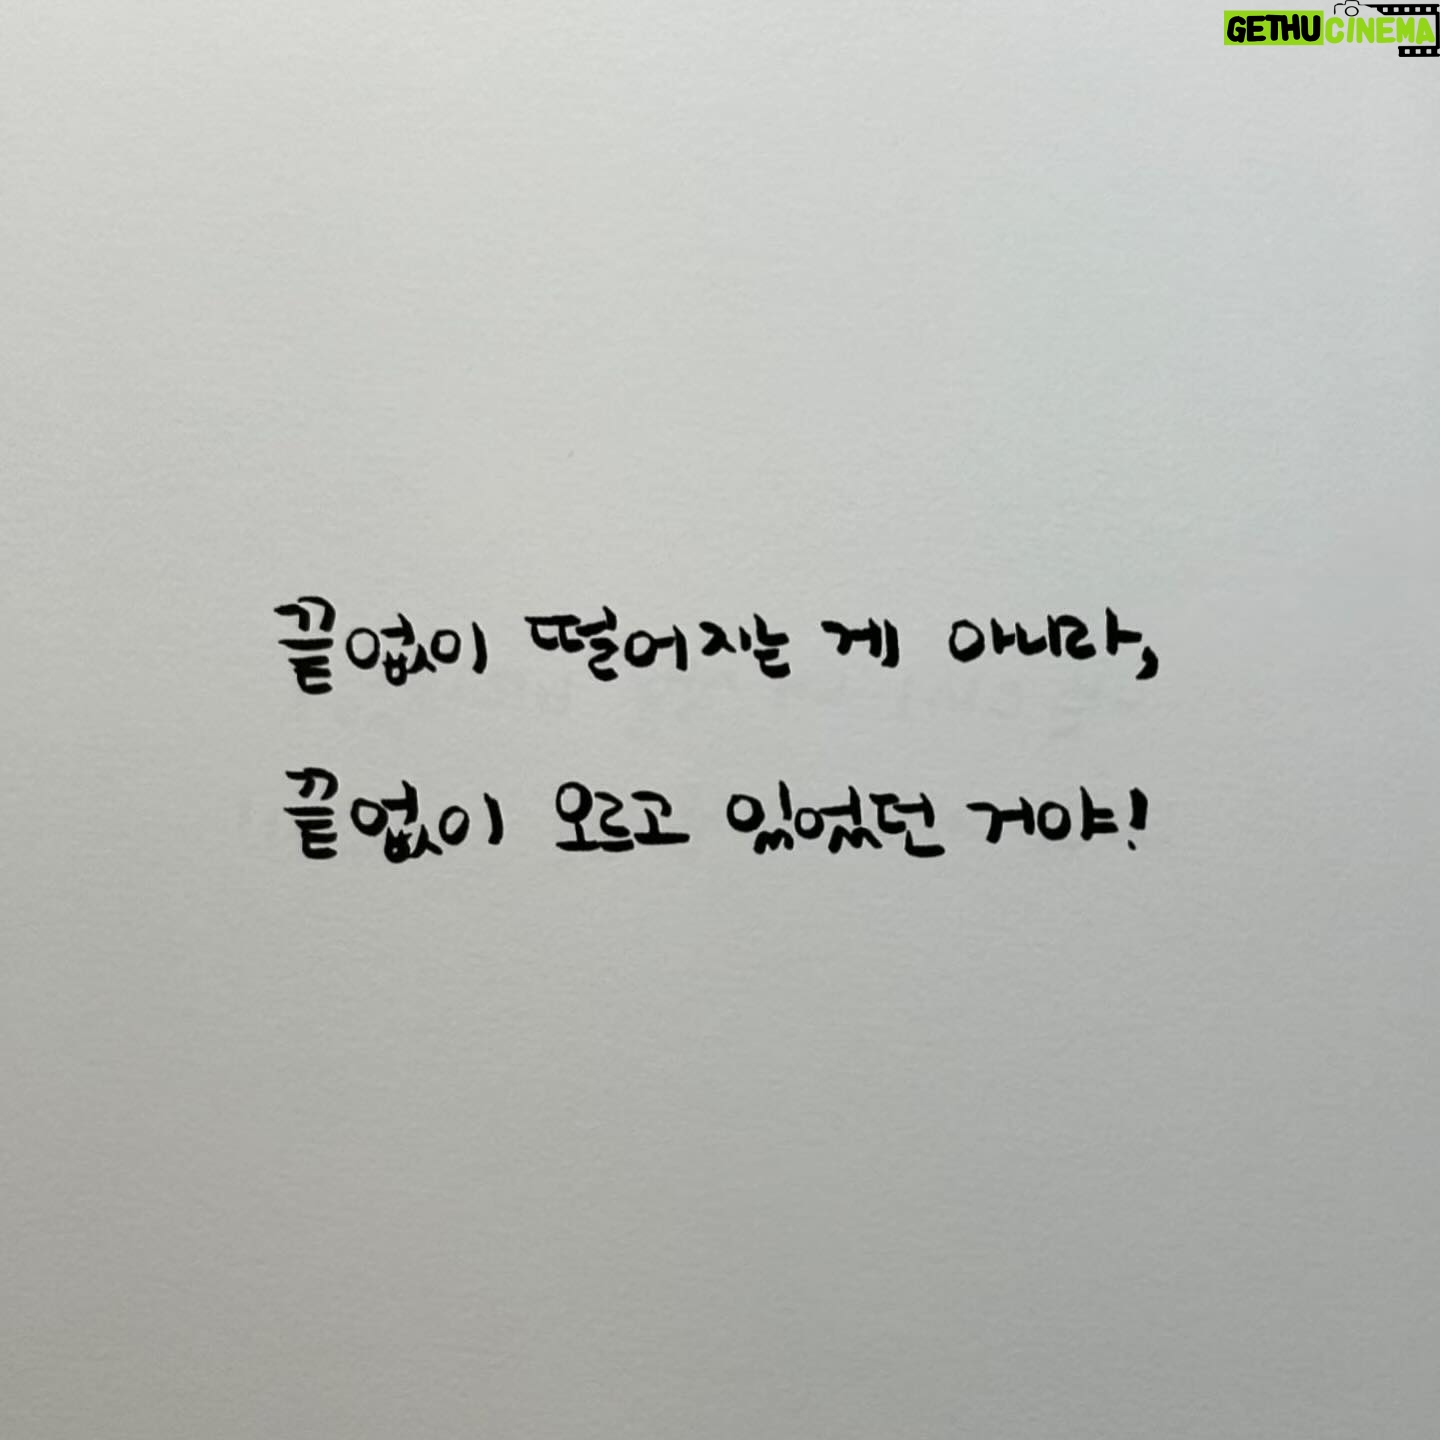 GETHUCINEMA
끝없이 떨어지는 게 아니라,
끝없이 오르고 있었던 거야!